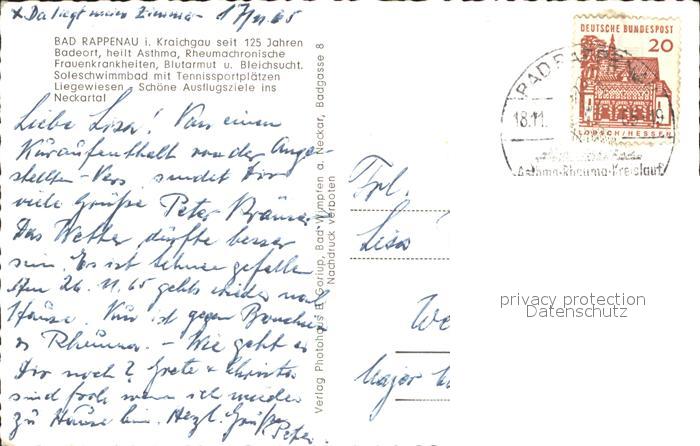 x Da liegt mein Zimmer 17/11 65
BAD RAPPENAU i. Kraichgau seit 125 Jahren
Badeort, heilt Asthma, Rheumachronische
Frauenkrankheiten, Blutarmut u. Bleichsucht.
Soleschwimmbad mit Tennissportplätzen
Liegewiesen Schöne Ausflugsziele ins
Neckartal
Liebe Lisa! Von einem
Kuraufenthalt von der Ange-
stellten-Vers. sendet Dir
viele Grüße Peter
Das Wetter dürfte besser
sein. Es ist Schnee gefallen
Am 26.11.65 gehts wieder nach
Hause. Kur ist gegen
u Rheuma. - Wie geht es
Dir noch? Grete &
sind froh wenn ich wieder
zu Hause bin. Herzl. Grüße
Peter.
Verlag Photohaus E. Goriup, Bad Wimpfen a. Neckar, Badgasse 8
Nachdruck verboten
DEUTSCHE BUNDESPOST
20
LORSCH/HESSEN
BAD RAPPENAU
18.11.
-19
Asthma-Rheuma-Kreislauf
Frl.
Lisa
We
Major
privacy protection
Datenschutz